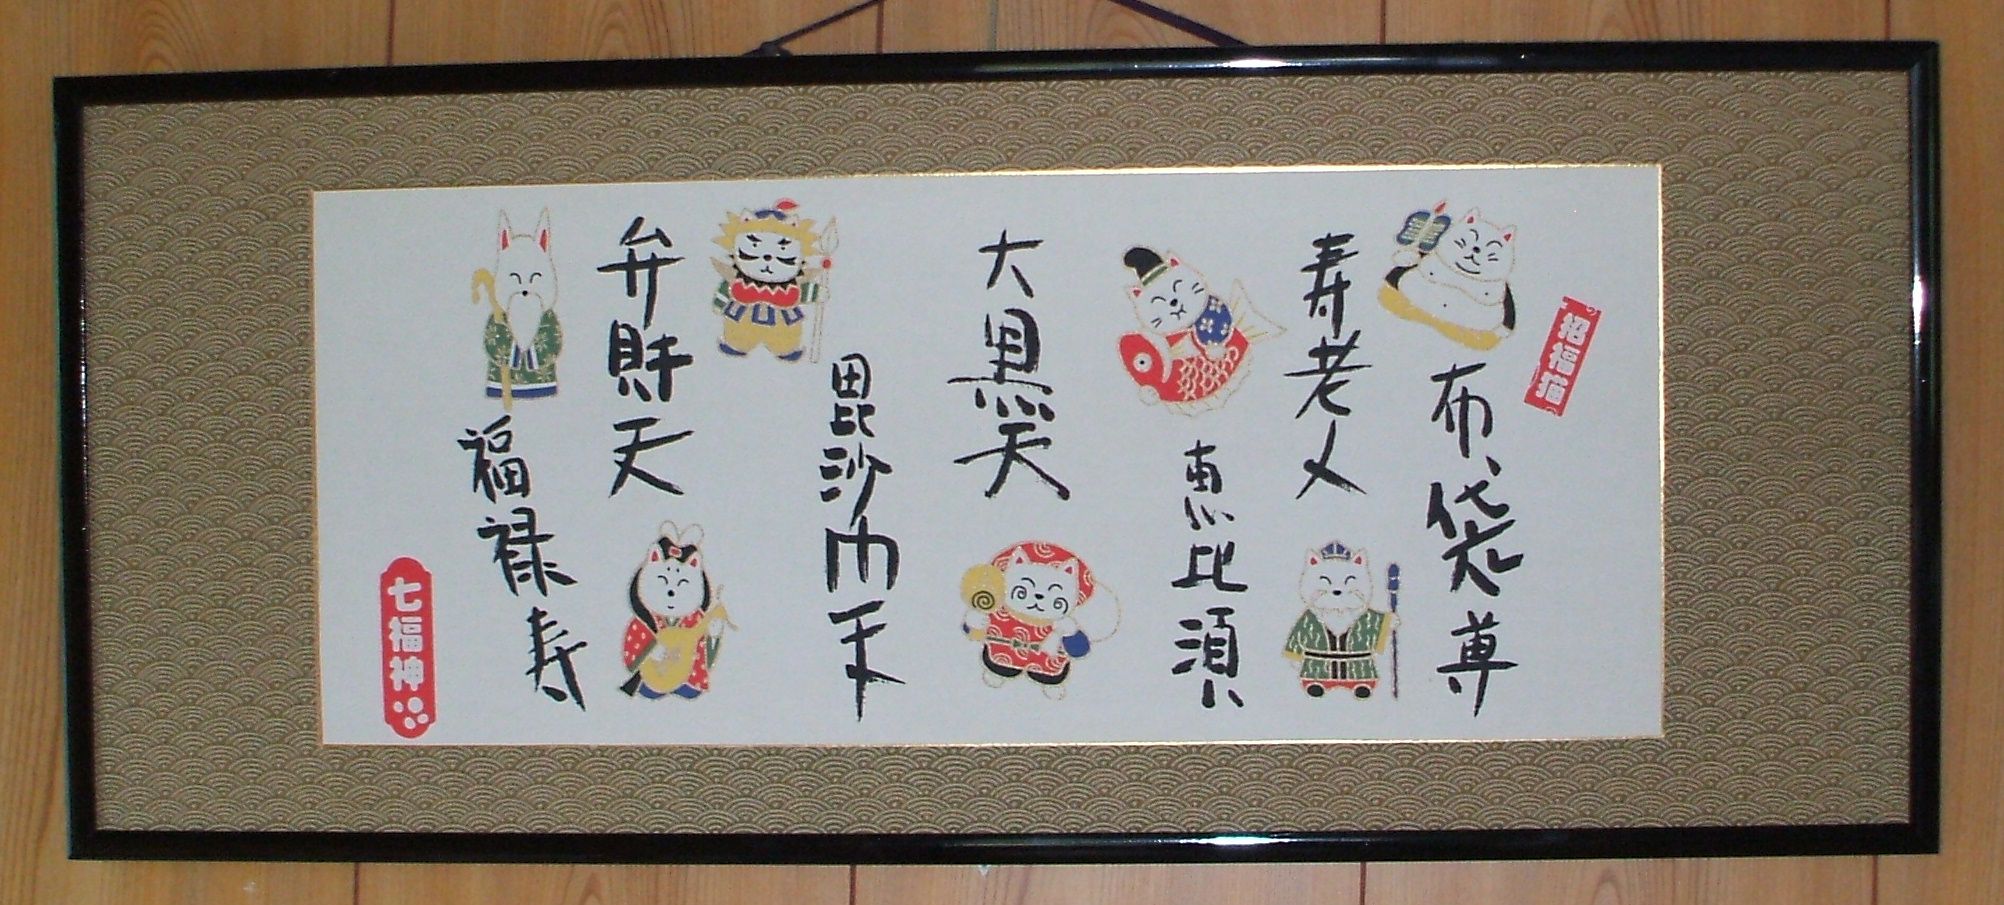 招福猫
布袋尊
寿老人
恵比須
大黒天
毘沙門天
弁財天
福禄寿
七福神